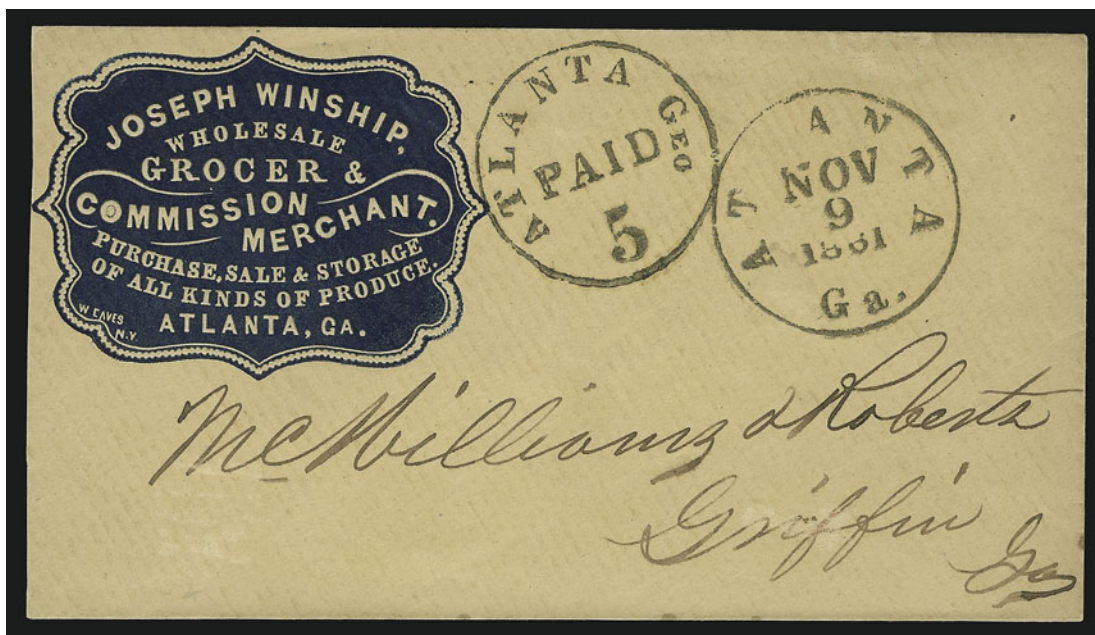 JOSEPH WINSHIP,
WHOLESALE
GROCER &
COMMISSION
MERCHANT.
PURCHASE, SALE & STORAGE
OF ALL KINDS OF PRODUCE.
ATLANTA, GA.
W EAVES
N.Y.
ATLANTA GEO
PAID
5
AT ANTA
NOV
9
1861
Ga.
McWilliams & Roberts
Griffin
Ga